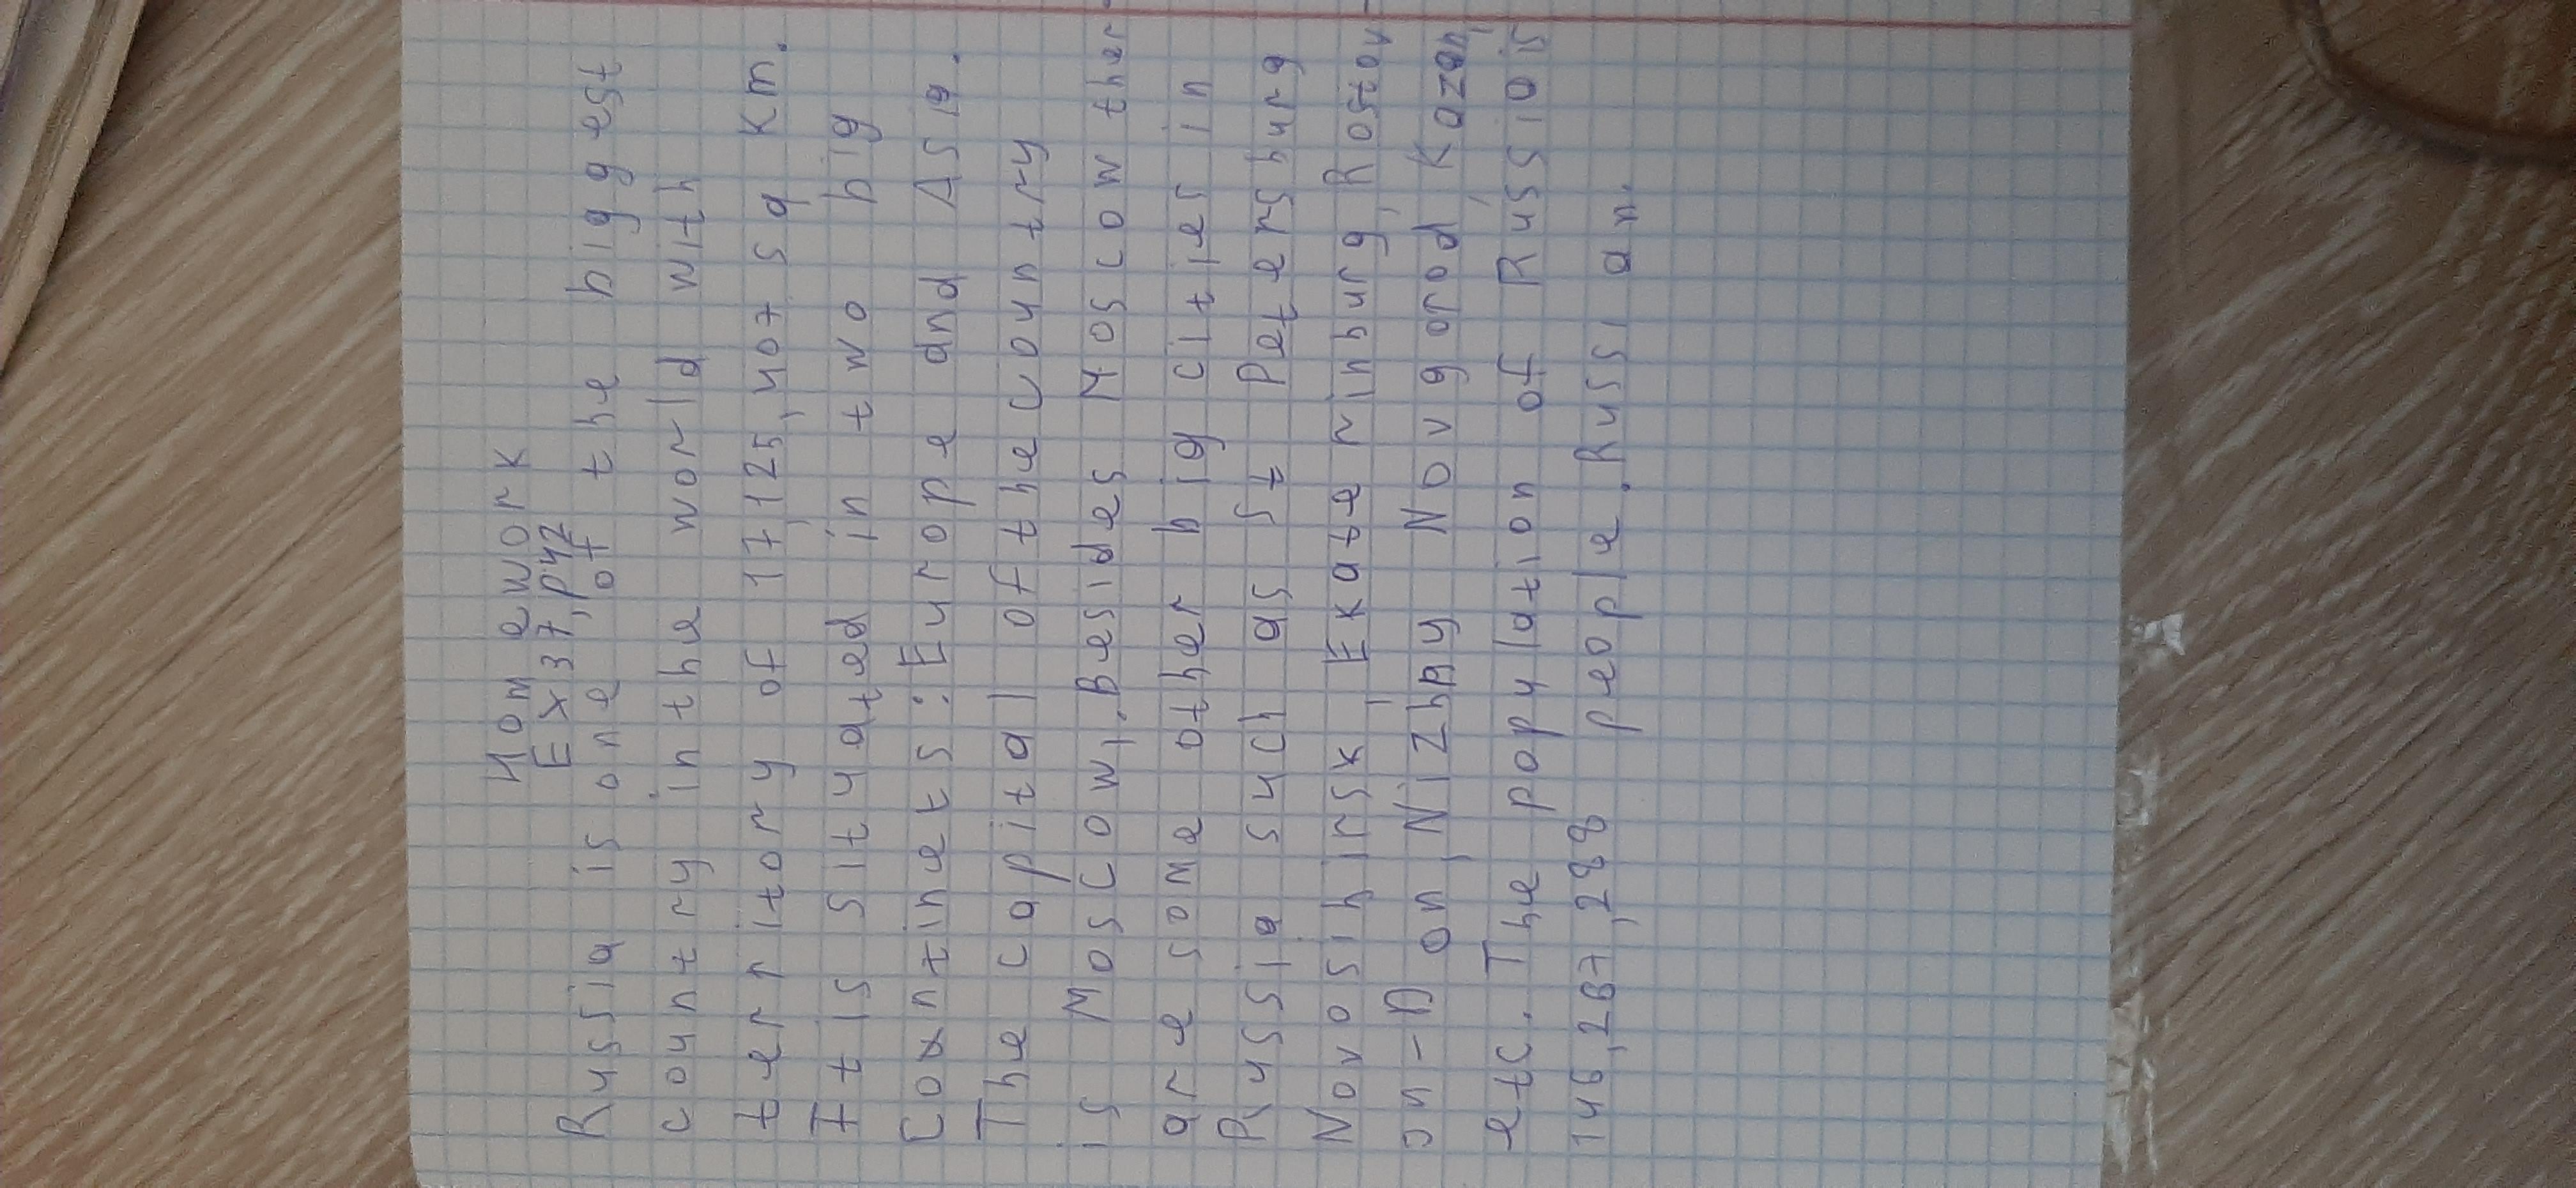 Homework
Ex37,p42
Russia is one of the biggest
country in the world with
territory of 17,125,407 sq km.
It is situated in two big
Countinets: Europe and Asia.
The capital of the country
is Moscow,. Besides Moscow ther
are some other big cities in
Russia such as St Petersburg
Novosibirsk, Ekaterinburg, Rostov-
on-D on, Nizhny Novgorod, Kazan,
etc. The population of Russiais
146,267,288 people. Russi an.